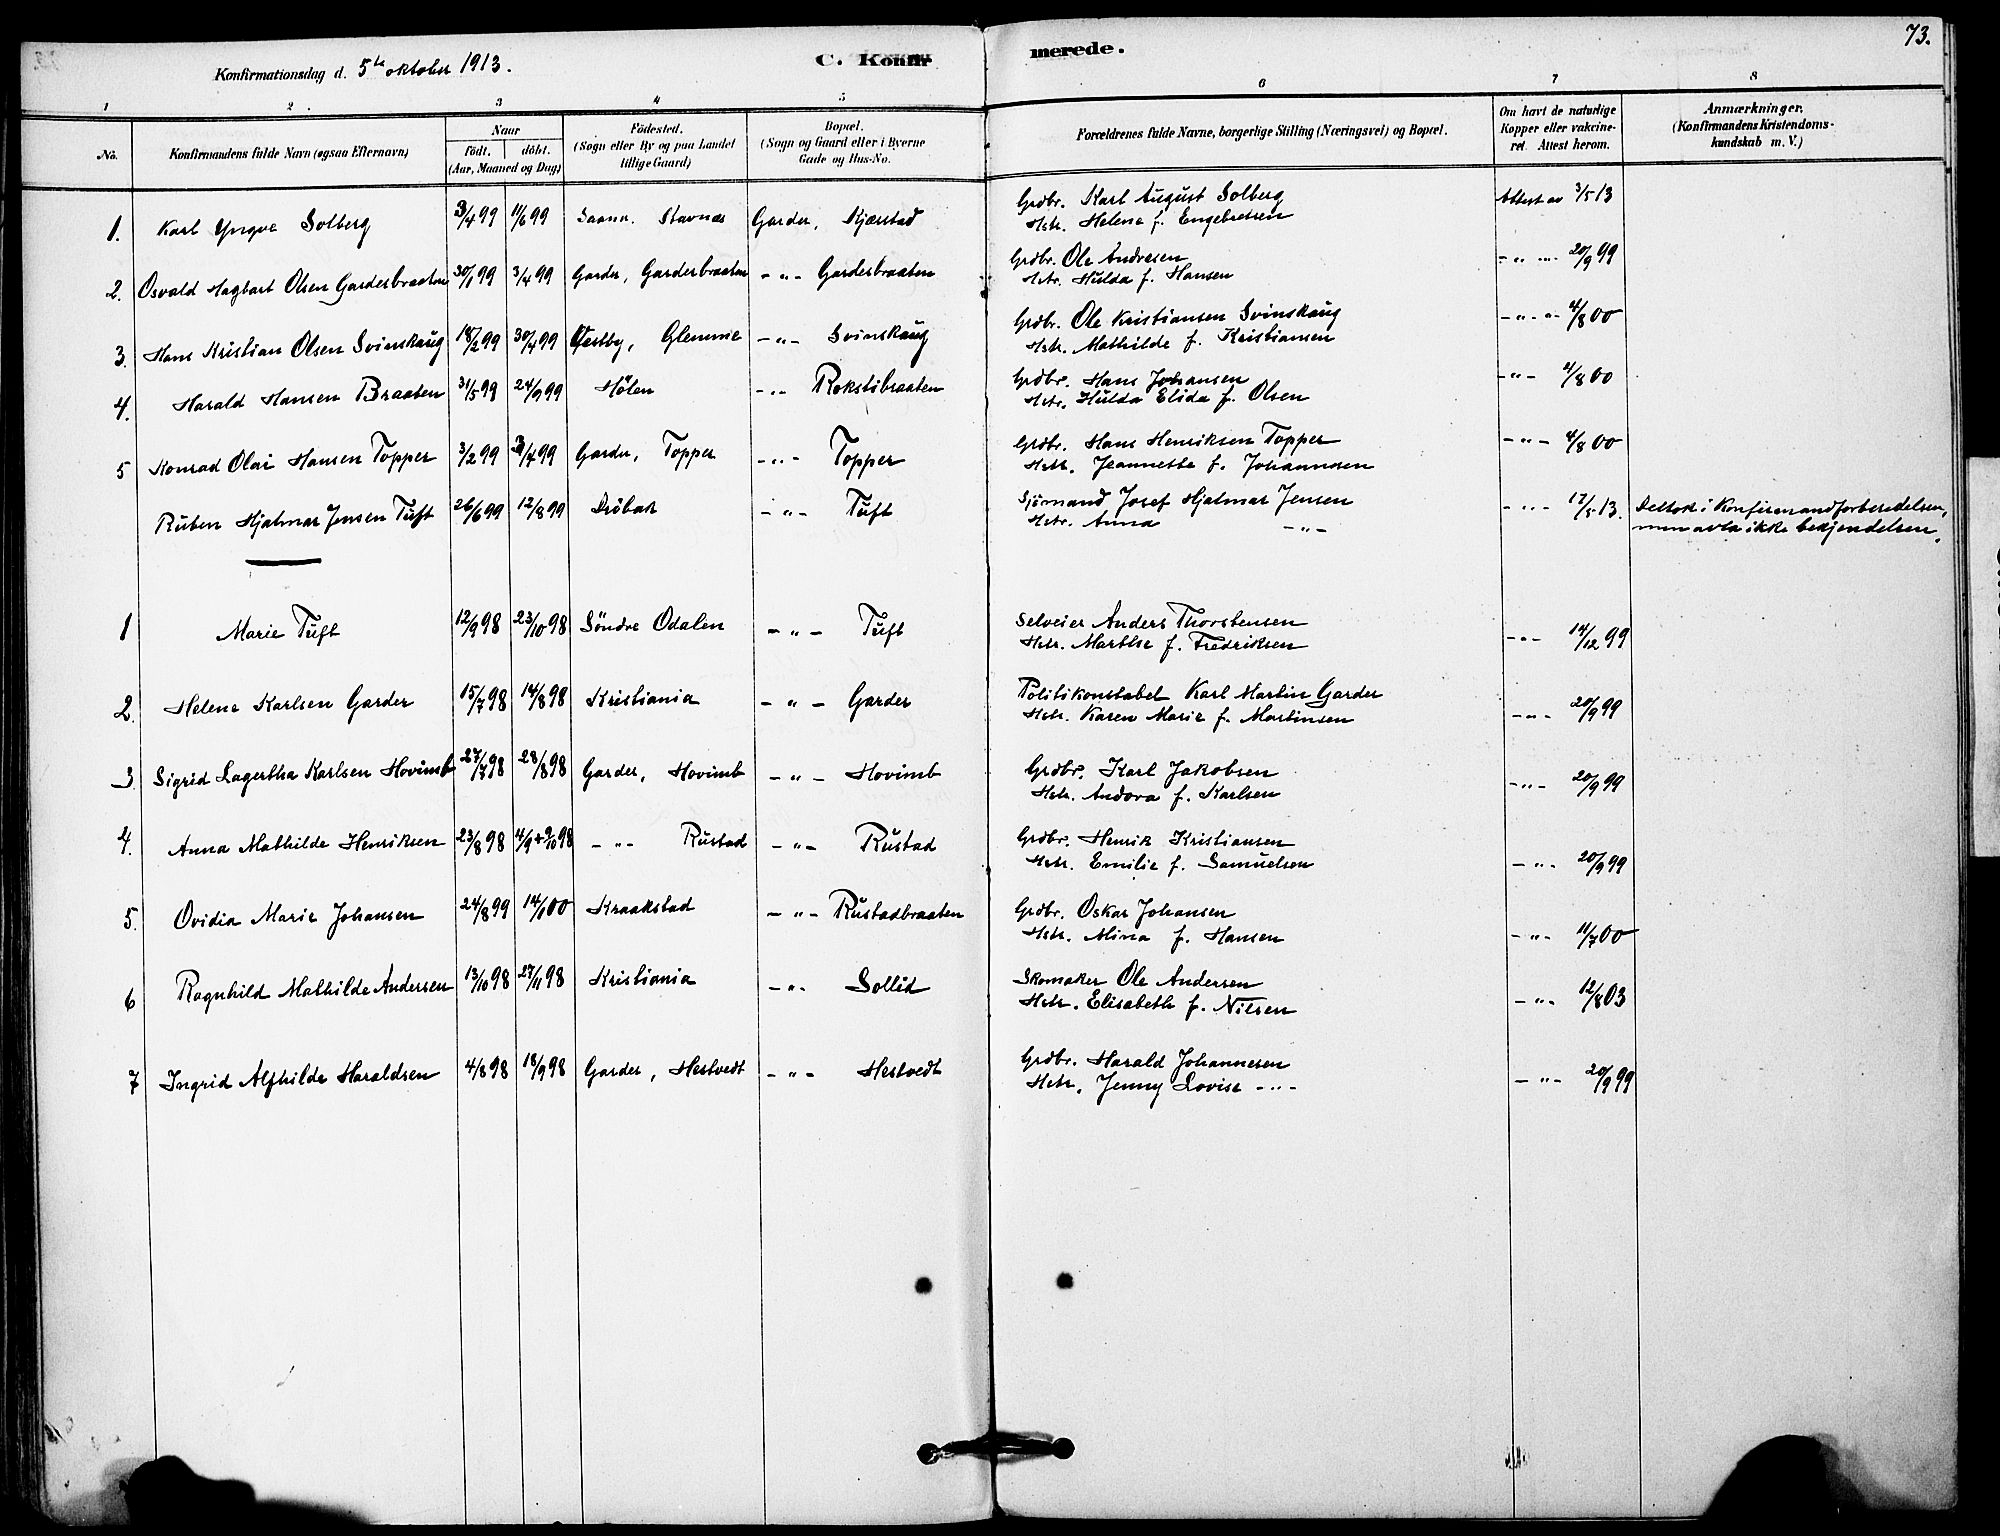 73.
Konfirmationsdag d. 5te oktober 1913.
C. Konfirmerede.
1 2 3 4 5 6 7 8
No.
Konfirmandens fulde Navn (ogsaa Efternavn)
Naar
født. døbt.
(Aar, Maaned og Dag)
Fødested.
(Sogn eller By og paa Landet
tillige Gaard)
Bopæl.
(Sogn og Gaard eller i Byerne
Gade og Hus-No.
Forældrenes fulde Navne, borgerlige Stilling (Næringsvei) og Bopæl.
Om havt de naturlige
Kopper eller vakcine-
ret. Attest herom.
Anmærkninger.
(Konfirmandens Kristendoms-
kundskab m. V.)
1. Karl Yngve Solberg 3/4 99 11/6 99 Saaner. Stavnæs Garder, Kjærstad Grdbr. Karl August Solberg Attest av 3/5 13
Hstr. Helene f. Engebretsen
2. Osvald Hagbart Olsen Garderbraaten 30/1 99 3/4 99 Garder, Garderbraaten -"- Garderbraaten Grdbr. Ole Andresen -"- 20/9 99
Hstr. Hulda f. Hansen
3. Hans Kristian Olsen Svinskaug 18/2 99 30/4 99 Vestby, Glemmie -"- Svinskaug Grdbr. Ole Kristiansen Svinskaug -"- 4/8 00
Hstr. Mathilde f. Kristiansen
4. Harald Hansen Braaten 31/5 99 24/9 99 Hølen -"- Rokstibraaten Grdbr. Hans Johansen -"- 4/8 00
Hstr. Hulda Elida f. Olsen
5 Konrad Olai Hansen Topper 3/2 99 3/4 99 Garder, Topper -"- Topper Grdbr. Hans Henriksen Topper -"- 4/8 00
Hstr. Jeannette f. Johannesen
Ruben Hjalmar Jensen Tuft 26/6 99 12/8 99 Drøbak -"- Tuft Sjømand Josef Hjalmar Jensen -"- 17/5 13. Deltok i Konfirmandforberedelsen,
Hstr. Anna -"- men avla ikke bekjendelsen.
1 Marie Tuft 12/9 98 23/10 98 Søndre Odalen -"- Tuft Selveier Anders Thorstensen -"- 14/12 99
Hstr. Marthe f. Fredriksen
2. Helene Karlsen Garder 15/7 98 14/8 98 Kristiania -"- Garder Politikonstabel Karl Martin Garder -"- 20/9 99
Hstr. Karen Marie f. Martinsen
3 Sigrid Lagertha Karlsen Hovimb 27/7 98 28/8 98 Garder, Hovimb -"- Hovimb Grdbr. Karl Jakobsen -"- 20/9 99
Hstr. Andora f. Karlsen
4. Anna Mathilde Henriksen 23/8 98 4/9+9/10 98 -"- Rustad -"- Rustad Grdbr. Henrik Kristiansen -"- 20/9 99
Hstr. Emilie f. Samuelsen
5. Ovidia Marie Johansen 24/8 99 14/1 00 Kraakstad -"- Rustadbraaten Grdbr. Oskar Johansen -"- 11/7 00
Hstr. Mina f. Hansen
6 Ragnhild Mathilde Andersen 13/10 98 27/11 98 Kristiania -"- Sollid Skomaker Ole Andersen -"- 12/8 03
Hstr. Elisabeth f. Nilsen
7 Ingrid Alfhilde Haraldsen 4/8 98 18/9 98 Garder, Hestvedt -"- Hestvedt Grdbr. Harald Johannesen -"- 20/9 99
Hstr. Jenny Lovise -"-